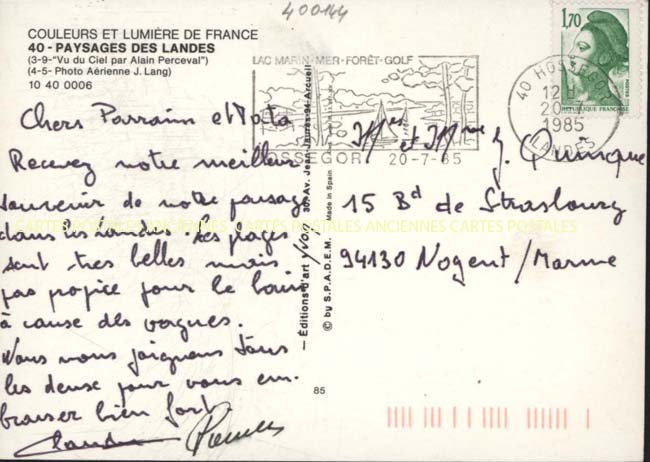 400144
COULEURS ET LUMIÈRE DE FRANCE
40 - PAYSAGES DES LANDES
(3-9-"Vu du Ciel par Alain Perceval")
(4-5- Photo Aérienne J. Lang)
10 40 0006
1,70
REPUBLIQUE FRANÇAISE
LAC MARIN-MER-FORÊT-GOLF
HOSSEGOR 20-7-85
40 HOSSEGOR
12 H
20-7
1985
LANDES
Chers Parrain et
Recevez notre meilleur
souvenir de notre passage
dans les Landes. Les plages
sont tres belles mais
pas propice pour le bain
à cause des vagues.
Nous nous joignons tous
les deux pour vous em-
brasser bien fort
Claudine
Mr et Mme J.
15 Bd de Strasbourg
94130 Nogent/Marne
— Éditions d'art YVON, 30, Av. Jean-Jaurès 94-Arcueil
© by S.P.A.D.E.M. Made in Spain
85
CARTES POSTALES ANCIENNES CARTES POSTALES ANCIENNES CARTES POSTALES